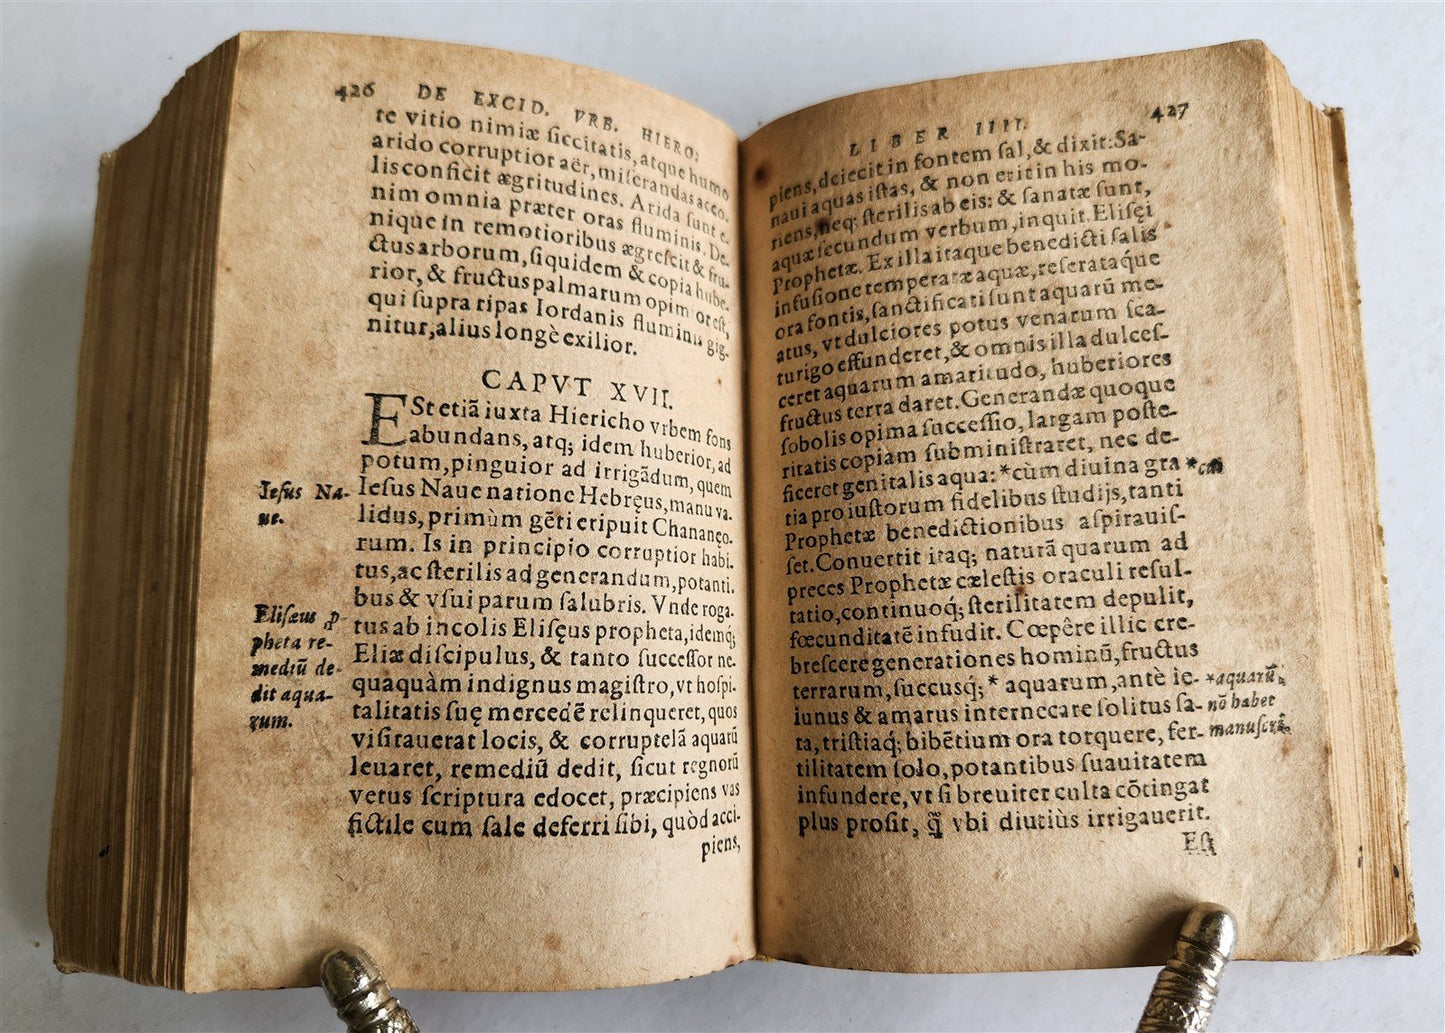 426 DE EXCID. VRB. HIERO:
te vitio nimiæ ſiccitatis, atque humo
arido corruptior aër, miſerandas acco.
lis conficit ægritudines. Arida ſunt e-
nim omnia præter oras fluminis. De-
nique in remotioribus ægreſcit & fru-
ctus arborum, ſiquidem & copia hube-
rior, & fructus palmarum opimior eſt,
qui ſupra ripas Iordanis fluminis gig-
nitur, alius longè exilior.
CAPVT XVII.
ESt etiā iuxta Hiericho vrbem fons
abundans, atq; idem huberior, ad
potum, pinguior ad irrigādum, quem
Ieſus Na-
ue.
Ieſus Naue natione Hebręus, manu va-
lidus, primùm gēti eripuit Chananęo.
rum. Is in principio corruptior habi.
tus, ac ſterilis ad generandum, potanti.
bus & vſui parum ſalubris. Vnde roga-
Eliſæus ꝓ-
pheta re-
mediū de-
dit aqua-
rum.
tus ab incolis Eliſęus propheta, idemq́;
Eliæ diſcipulus, & tanto ſucceſſor ne-
quaquàm indignus magiſtro, vt hoſpi-
talitatis ſuę mercedē relinqueret, quos
viſitauerat locis, & corruptelā aquarū
leuaret, remediū dedit, ſicut regnorū
vetus ſcriptura edocet, præcipiens vas
fictile cum ſale deferri ſibi, quòd acci-
piens,
LIBER IIII. 427
piens, deiecit in fontem ſal, & dixit: Sa-
naui aquas iſtas, & non erit in his mo-
riens, neq; ſterilis ab eis: & ſanatæ ſunt,
aquæ ſecundum verbum, inquit. Eliſęi
Prophetæ. Ex illa itaque benedicti ſalis
infuſione temperatæ aquæ, reſerataq́ue
ora fontis, ſanctificati ſunt aquarū me-
atus, vt dulciores potus venarum ſca-
turigo effunderet, & omnis illa dulceſ-
ceret aquarum amaritudo, huberiores
fructus terra daret. Generandæ quoque
ſobolis opima ſucceſſio, largam poſte-
ritatis copiam ſubminiſtraret, nec de-
ficeret genitalis aqua: *cùm diuina gra
*cùi
tia pro iuſtorum fidelibus ſtudijs, tanti
Prophetæ benedictionibus aſpirauiſ-
ſet. Conuertit itaq; naturā quarum ad
preces Prophetæ cæleſtis oraculi reſul-
tatio, continuoq́; ſterilitatem depulit,
fœcunditatē infudit. Cœpêre illic cre-
breſcere generationes hominū, fructus
terrarum, ſuccusq́; * aquarum, antè ie-
*aquarū
nō habet
manuſcrī.
iunus & amarus internecare ſolitus ſa-
ta, triſtiaq́; bibētium ora torquere, fer-
tilitatem ſolo, potantibus ſuauitatem
infundere, vt ſi breuiter culta cōtingat
plus proſit, q̃ vbi diutiùs irrigauerit.
Eſt